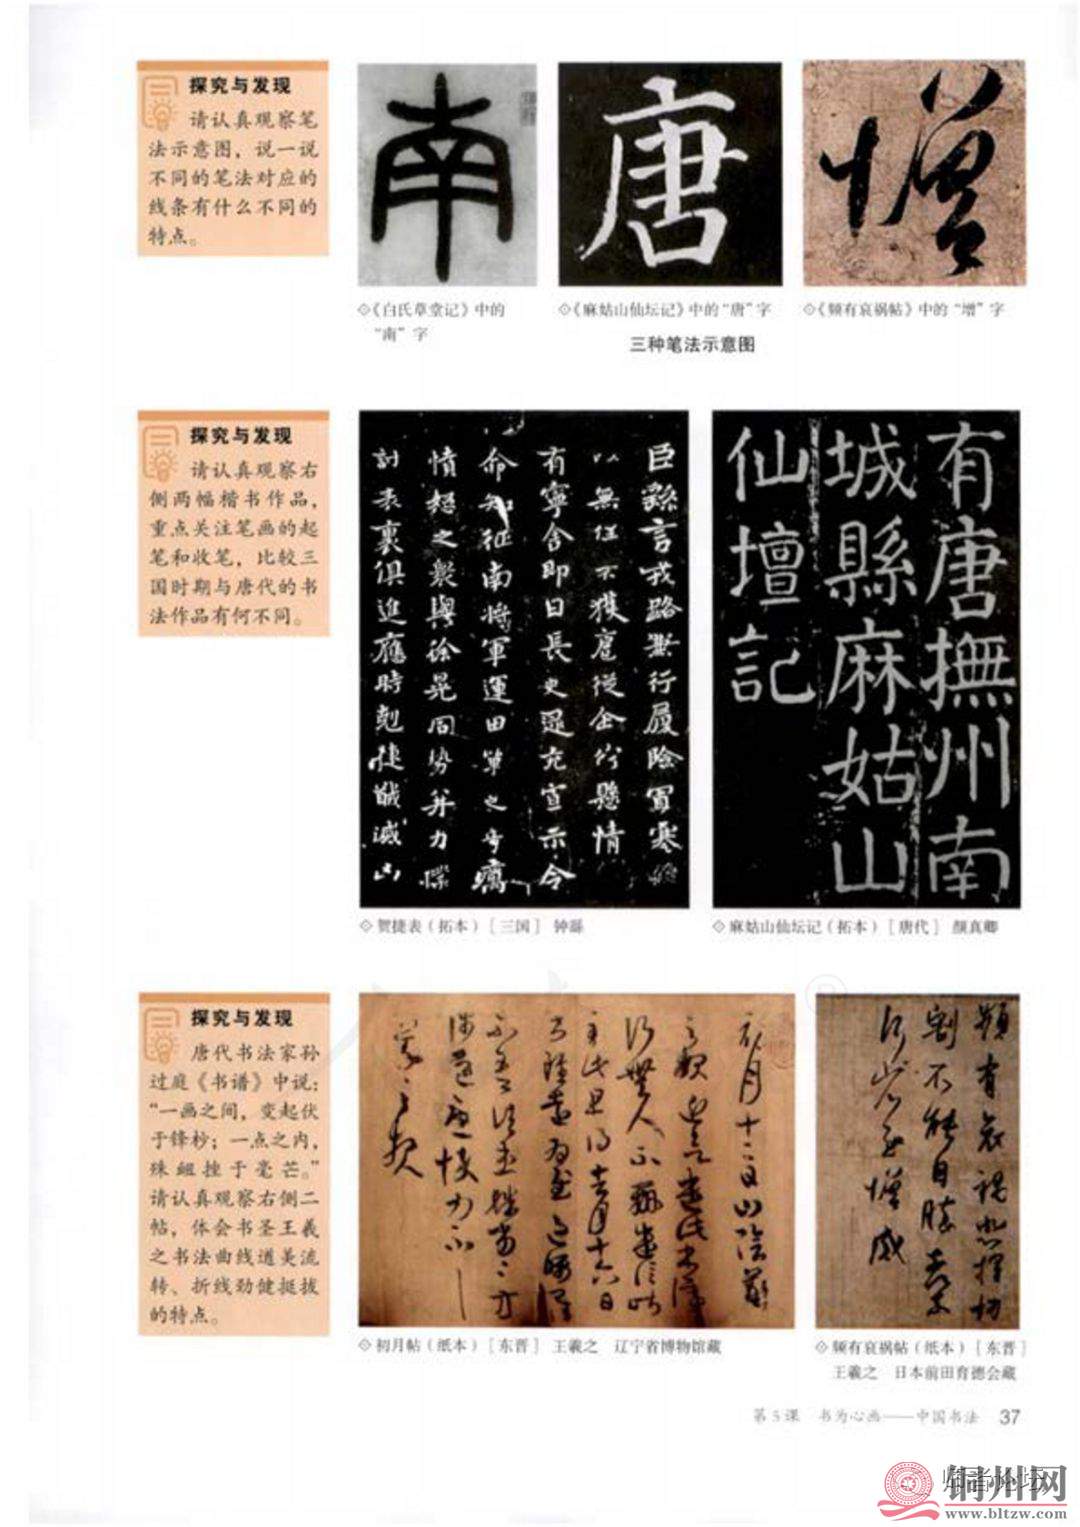 探究与发现
请认真观察笔
法示意图，说一说
不同的笔法对应的
线条有什么不同的
特点。
南
唐
增
◇《白氏草堂记》中的
“南”字
◇《麻姑山仙坛记》中的“唐”字
◇《频有哀祸帖》中的“增”字
三种笔法示意图
探究与发现
请认真观察右
侧两幅楷书作品，
重点关注笔画的起
笔和收笔，比较三
国时期与唐代的书
法作品有何不同。
臣繇言戎路兼行履险冒寒
以無任不獲扈從企佇懸情
有寧舍即日長史逯充宣示令
命知征南將軍運田單之奇厲
憤怒之眾與徐晃同勢并力
討表裏俱進應時剋捷馘滅凶
有唐撫州南
城縣麻姑山
仙壇記
◇贺捷表（拓本）［三国］ 钟繇
◇麻姑山仙坛记（拓本）［唐代］ 颜真卿
探究与发现
唐代书法家孙
过庭《书谱》中说：
“一画之间，变起伏
于锋杪；一点之内，
殊衄挫于毫芒。”
请认真观察右侧二
帖，体会书圣王羲
之书法曲线遒美流
转、折线劲健挺拔
的特点。
初月十二日山陰羲
頻有哀禍悲摧切
割不能自勝奈何
奈何省慰增感
◇初月帖（纸本）［东晋］ 王羲之 辽宁省博物馆藏
◇频有哀祸帖（纸本）［东晋］
王羲之 日本前田育德会藏
第5课 书为心画——中国书法 37
铜州网
www.bltzw.com